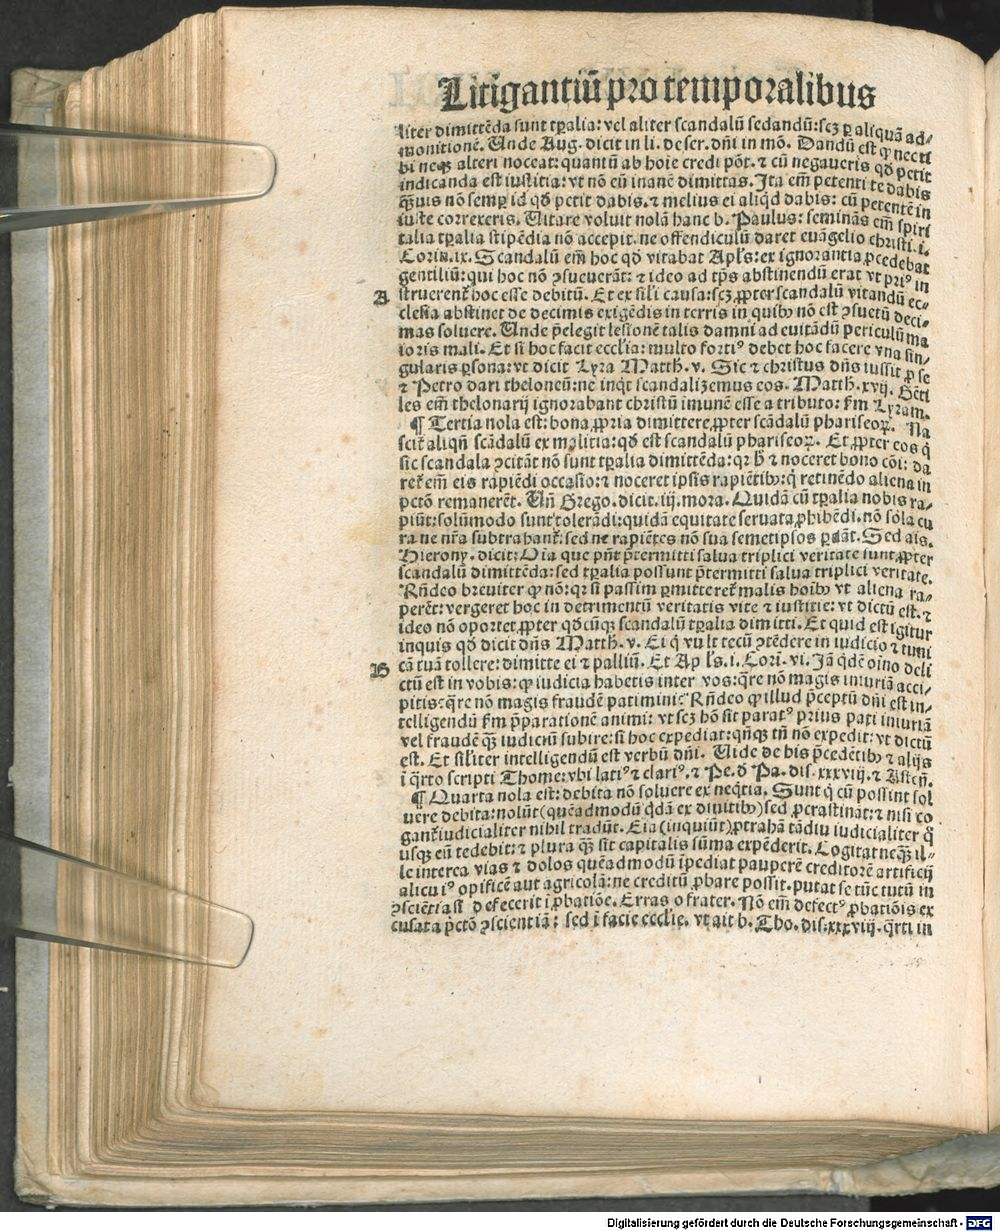 Litigantiū pro temporalibus
liter dimittēda sunt tꝑalia: vel aliter scandalū sedandū: scꝫ ꝑ aliquā ad-
monitionē. Unde Aug. dicit in li. de ser. dñi in mō. Dandū est ꝙ nec ti
bi neqꝫ alteri noceat: quantū ab hoīe credi pōt. ⁊ cū negaveris qḋ petit
indicanda est iustitia: vt nō eū inanē dimittas. Ita em̄ petenti te dabis
q̄ꝫuis nō semꝑ id qḋ petit dabis. ⁊ melius ei aliq̇d dabis: cū petentē in
iuste correxeris. Uitare voluit nolā hanc b. Paulus: seminās em̄ spiri
talia tꝑalia stipēdia nō accepit. ne offendiculū daret euāgelio christi. i.
Corin. ix. Scandalū em̄ hoc qḋ vitabat Apl's: ex ignorantia ꝓcedebat
gentiliū: qui hoc nō ꝯsueuerāt: ⁊ ideo ad tp̄s abstinendū erat vt priꝰ in
A struerent̄ hoc esse debitū. Et ex sil'i causa: scꝫ ꝓpter scandalū vitandū ec-
clesia abstinet de decimis exigēdis in terris in quibꝫ nō est ꝯsuetū deci-
mas soluere. Unde p̄elegit lesionē talis damni ad euitādū periculū ma
ioris mali. Et si hoc facit eccl'ia: multo fortiꝰ debet hoc facere vna sin-
gularis ꝑsona: vt dicit Lyra Matth. v. Sic ⁊ christus dñs iussit ꝓ se
⁊ Petro dari theloneū: ne inq̇t scandalizemus eos. Matth. xvij. Gēti
les em̄ thelonarij ignorabant christū imunē esse a tributo: ẜm Lyram.
¶ Tertia nola est: bona ꝓpria dimittere ꝓpter scādalū phariseoꝝ. Na
scit̄ aliqn̄ scādalū ex malitia: qḋ est scandalū phariseoꝝ. Et ꝓpter eos q̇
sic scandala ꝯcitāt nō sunt tꝑalia dimittēda: qꝛ h̄ ⁊ noceret bono cōi: da
ret̄ em̄ eis rapiēdi occasio: ⁊ noceret ipsis rapiētibꝫ: q̇ retinēdo aliena in
pctō remanerēt. Un̄ Grego. dicit. iij. mora. Quidā cū tꝑalia nobis ra-
piūt: solūmodo sunt tolerādi: quidā equitate seruata ꝓhibēdi. nō sola cu
ra ne nr̄a subtrahant̄: sed ne rapiētes nō sua semetipsos ꝑdāt. Sed ais.
Hierony. dicit: Oīa que pn̄t p̄termitti salua triplici veritate sunt ꝓpter
scandalū dimittēda: sed tꝑalia possunt p̄termitti salua triplici veritate.
Rn̄deo breuiter ꝙ nō: qꝛ si passim ꝑmitteret̄ malis hoībꝫ vt aliena ra-
perēt: vergeret hoc in detrimentū veritatis vite ⁊ iustitie: vt dictū est. ⁊
ideo nō oportet ꝓpter qḋcūqꝫ scandalū tꝑalia dimitti. Et quid est igitur
inquis qḋ dicit dñs Matth. v. Ei q̇ vult tecū ꝯtēdere in iudicio ⁊ tuni
B cā tuā tollere: dimitte ei ⁊ palliū. Et Apl's. i. Corī. vi. Jā q̇dē oīno deli
ctū est in vobis: ꝙ iudicia habetis inter vos: q̄re nō magis iniuriā acci-
pitis: q̄re nō magis fraudē patimini? Rn̄deo ꝙ illud p̄ceptū dñi est in-
telligendū ẜm p̄parationē animi: vt scꝫ hō sit paratꝰ prius pati iniuriā
vel fraudē q̄ꝫ iudiciū subire: si hoc expediat: qn̄qꝫ tn̄ nō expedit: vt dictū
est. Et sil'iter intelligendū est verbū dñi. Uide de his p̄cedētibꝫ ⁊ alijs
ī q̄rto scripti Thome: vbi latiꝰ ⁊ clariꝰ. ⁊ Pe. ḋ Pa. dis. xxxviij. ⁊ Asten̄.
¶ Quarta nola est: debita nō soluere ex neq̇tia. Sunt q̇ cū possint sol
uere debita: nolūt (quēadmodū q̇dā ex diuitibꝫ) sed ꝓcrastināt: ⁊ nisi co
gant̄ iudicialiter nihil tradūt. Eia (inquiūt) ꝓtrahā tādiu iudicialiter q̇
usqꝫ eū tedebit: ⁊ plura q̄ꝫ sit capitalis sūma expēderit. Cogitat neq̄ꝫ il-
le interea vias ⁊ dolos quēadmodū īpediat pauperē creditorē artificij
alicuiꝰ opificē aut agricolā: ne creditū ꝓbare possit. putat se tūc tutū in
ꝯsciētia si defecerit ī ꝓbatiōe. Erras o frater. Nō em̄ defectꝰ ꝓbatiōis ex
cusata pctō ꝯscientiā: sed ī facie ecclie. vt ait b. Tho. dis. xxxviij. q̄rti in
Digitalisierung gefördert durch die Deutsche Forschungsgemeinschaft - DFG